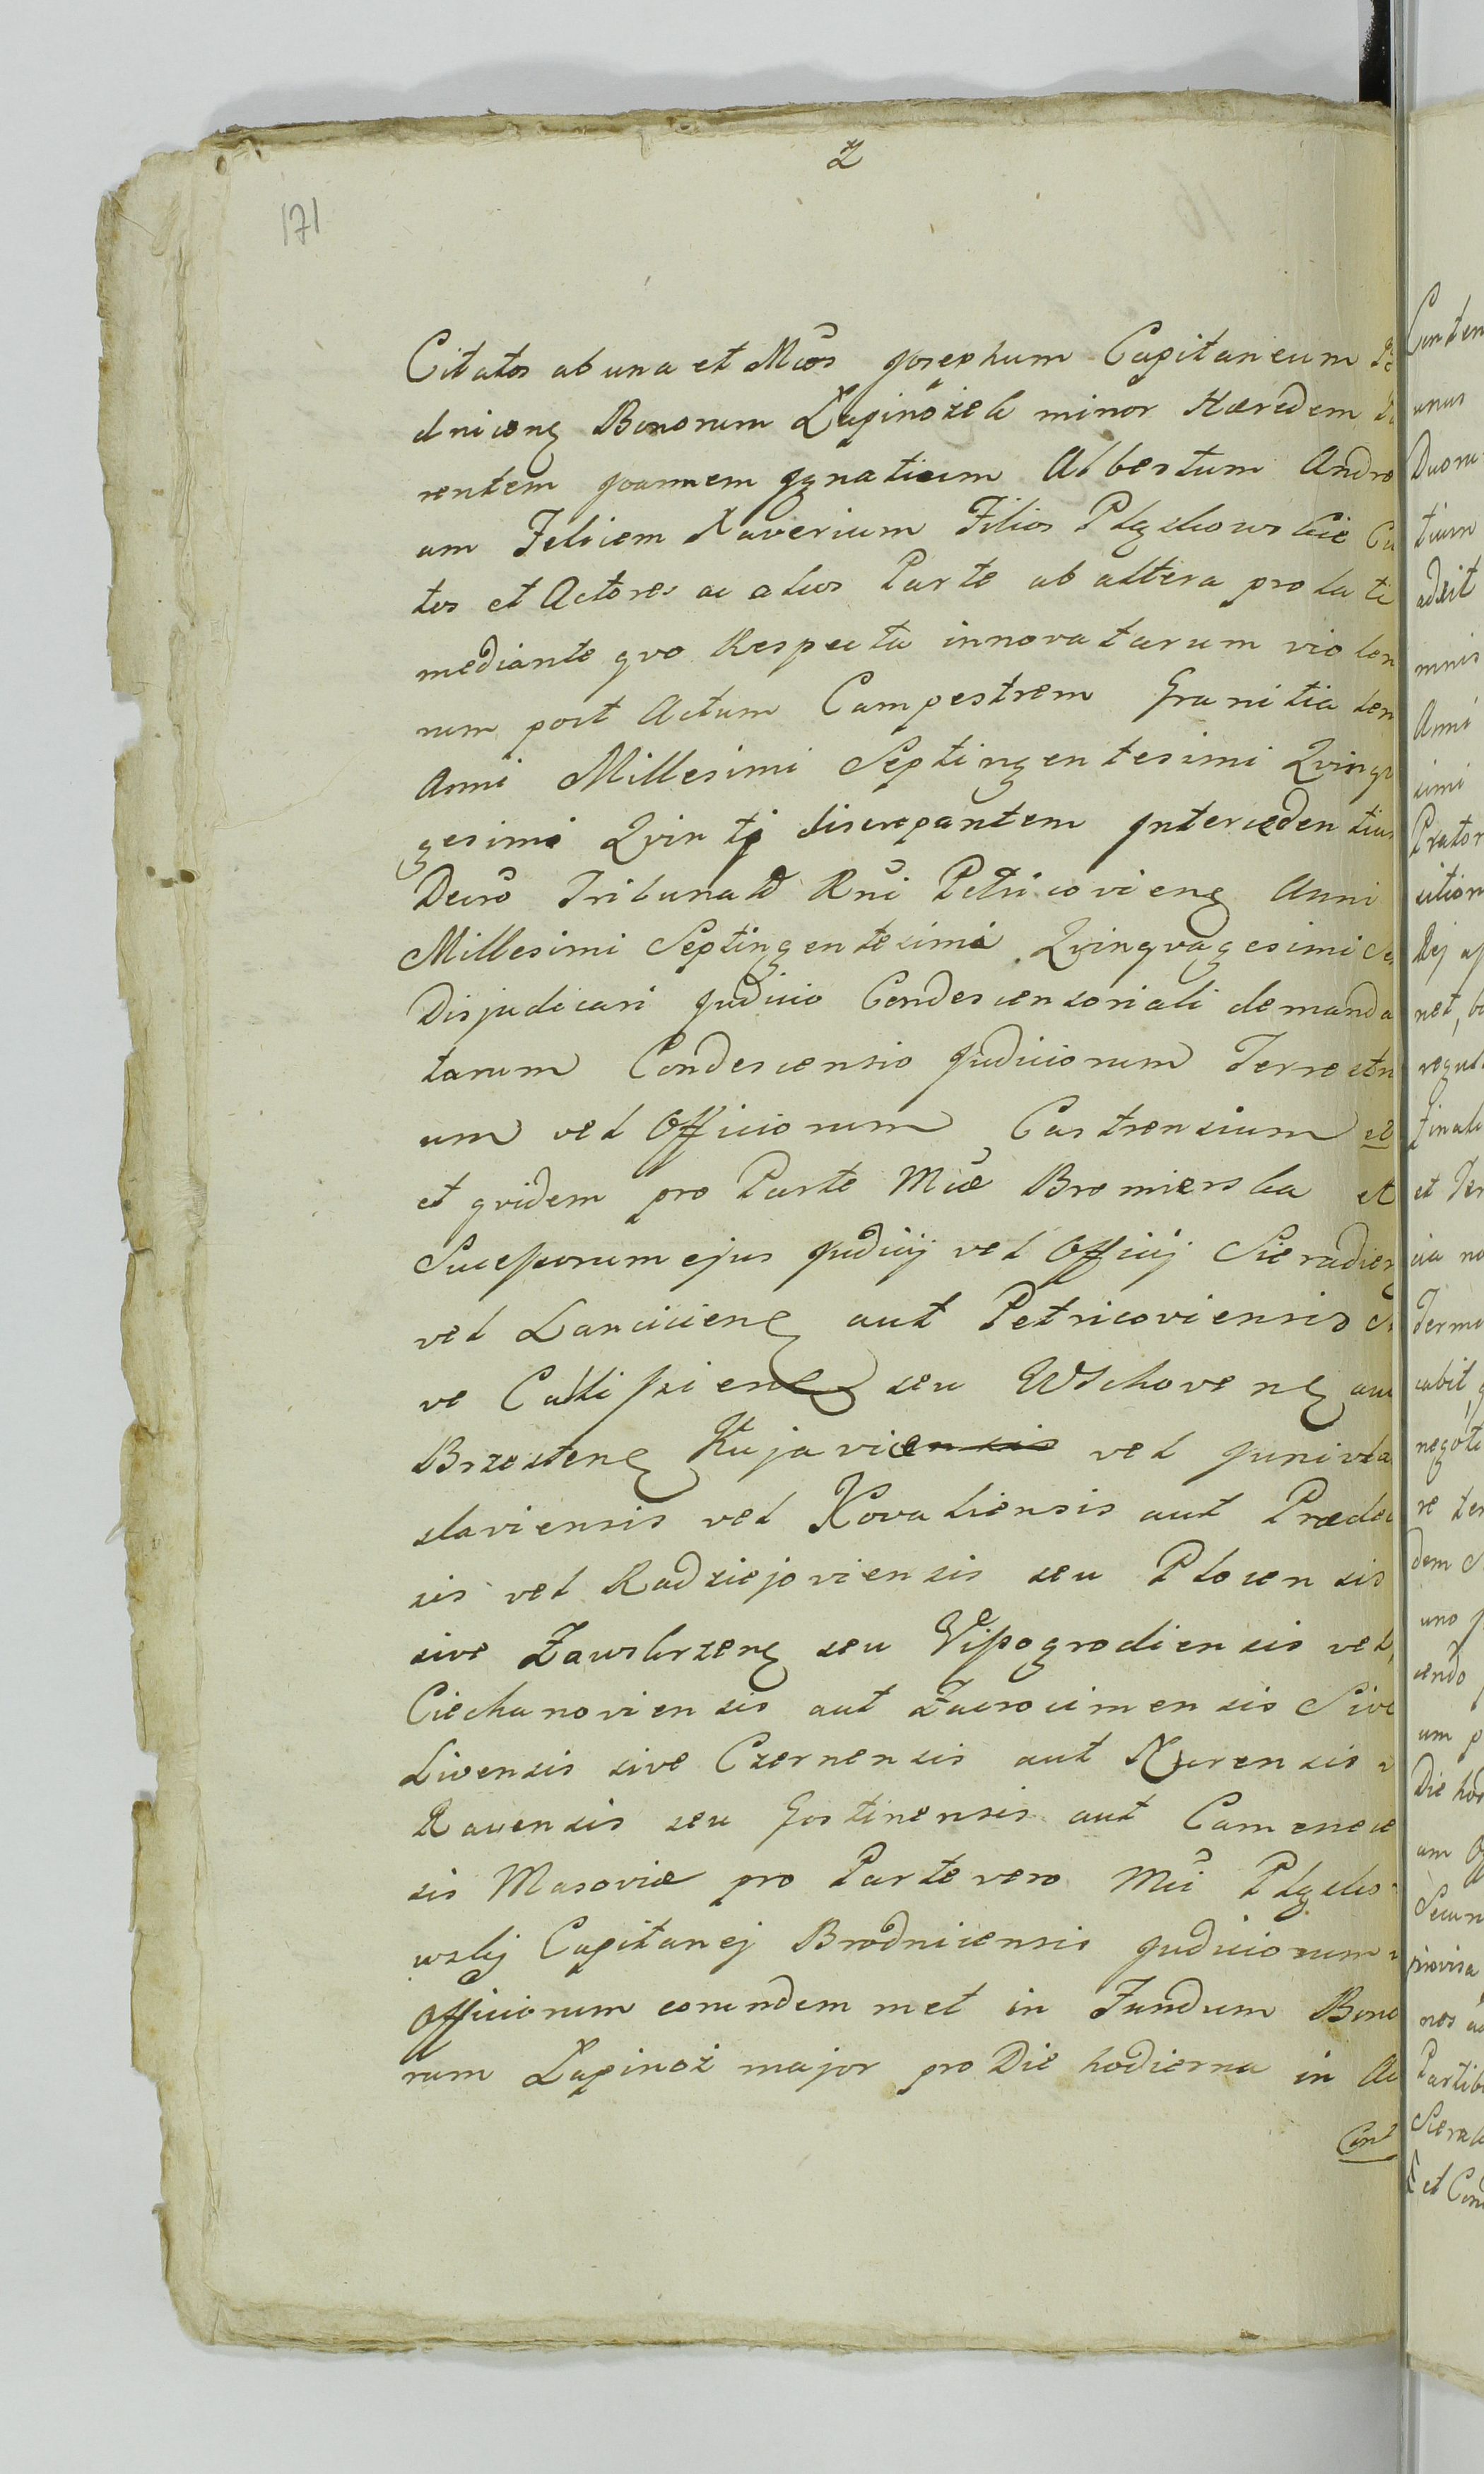 2
171
Citatos ab una et Mcos Josephum Capitaneum
dnicens Bonorum Łapinożek minor Hæredem
rentem Joannem Ignatium Albertum Andre
am Felicem Xaverium Filios Pląskowskie Ci
tos et Actores ac alios Parte ab altera prolati
mediante qvo Respectu innovatarum violen
rum post Actum Campestrem Granitialem
Anni Millesimi Septingentesimi Qvinqv
gesimi Qvinti discrepantem Intercedentium
Decro Tribunal Rni Petricoviens Anni
Millesimi Septingentesimi Qvinqvagesimi
Disjudicari Judicio Condescensoriali demanda
tarum Condescensio Judiciorum Terrestri
um vel Officiorum Castrensium
et qvidem pro Parte Mcæ Bromierska et
Successorum ejus Judicij vel Officij Sieradiens
vel Lanciciens aut Petricoviensis
ve Calissiens seu Wschovens aut
Brzestens Kujaviensis vel Junivla
slaviensis vel Kovaliensis aut Prædec
sis vel Radziejoviensis seu Plocensis
sive Zawskrzens seu Vissogrodiensis vel
Ciechanoviensis aut Zacrocimensis Sive
Livensis sive Czernensis aut Nurensis
Ravensis seu Gostinensis aut Camenece
sis Masoviæ pro Parte vero Mci Pląsko
wskij Capitanej Brodnicensis Judiciorum
Officiorum eorundem met in Fundum Bono
rum Łapinoż major pro Die hodierna in Ac
Cont
unus
Duoru
tium
adsit
mnis
Anni
simi
net
et Ter
Termi
negoti
dem
uno
cendo
um p
Die hod
Secun
Partib
et Con